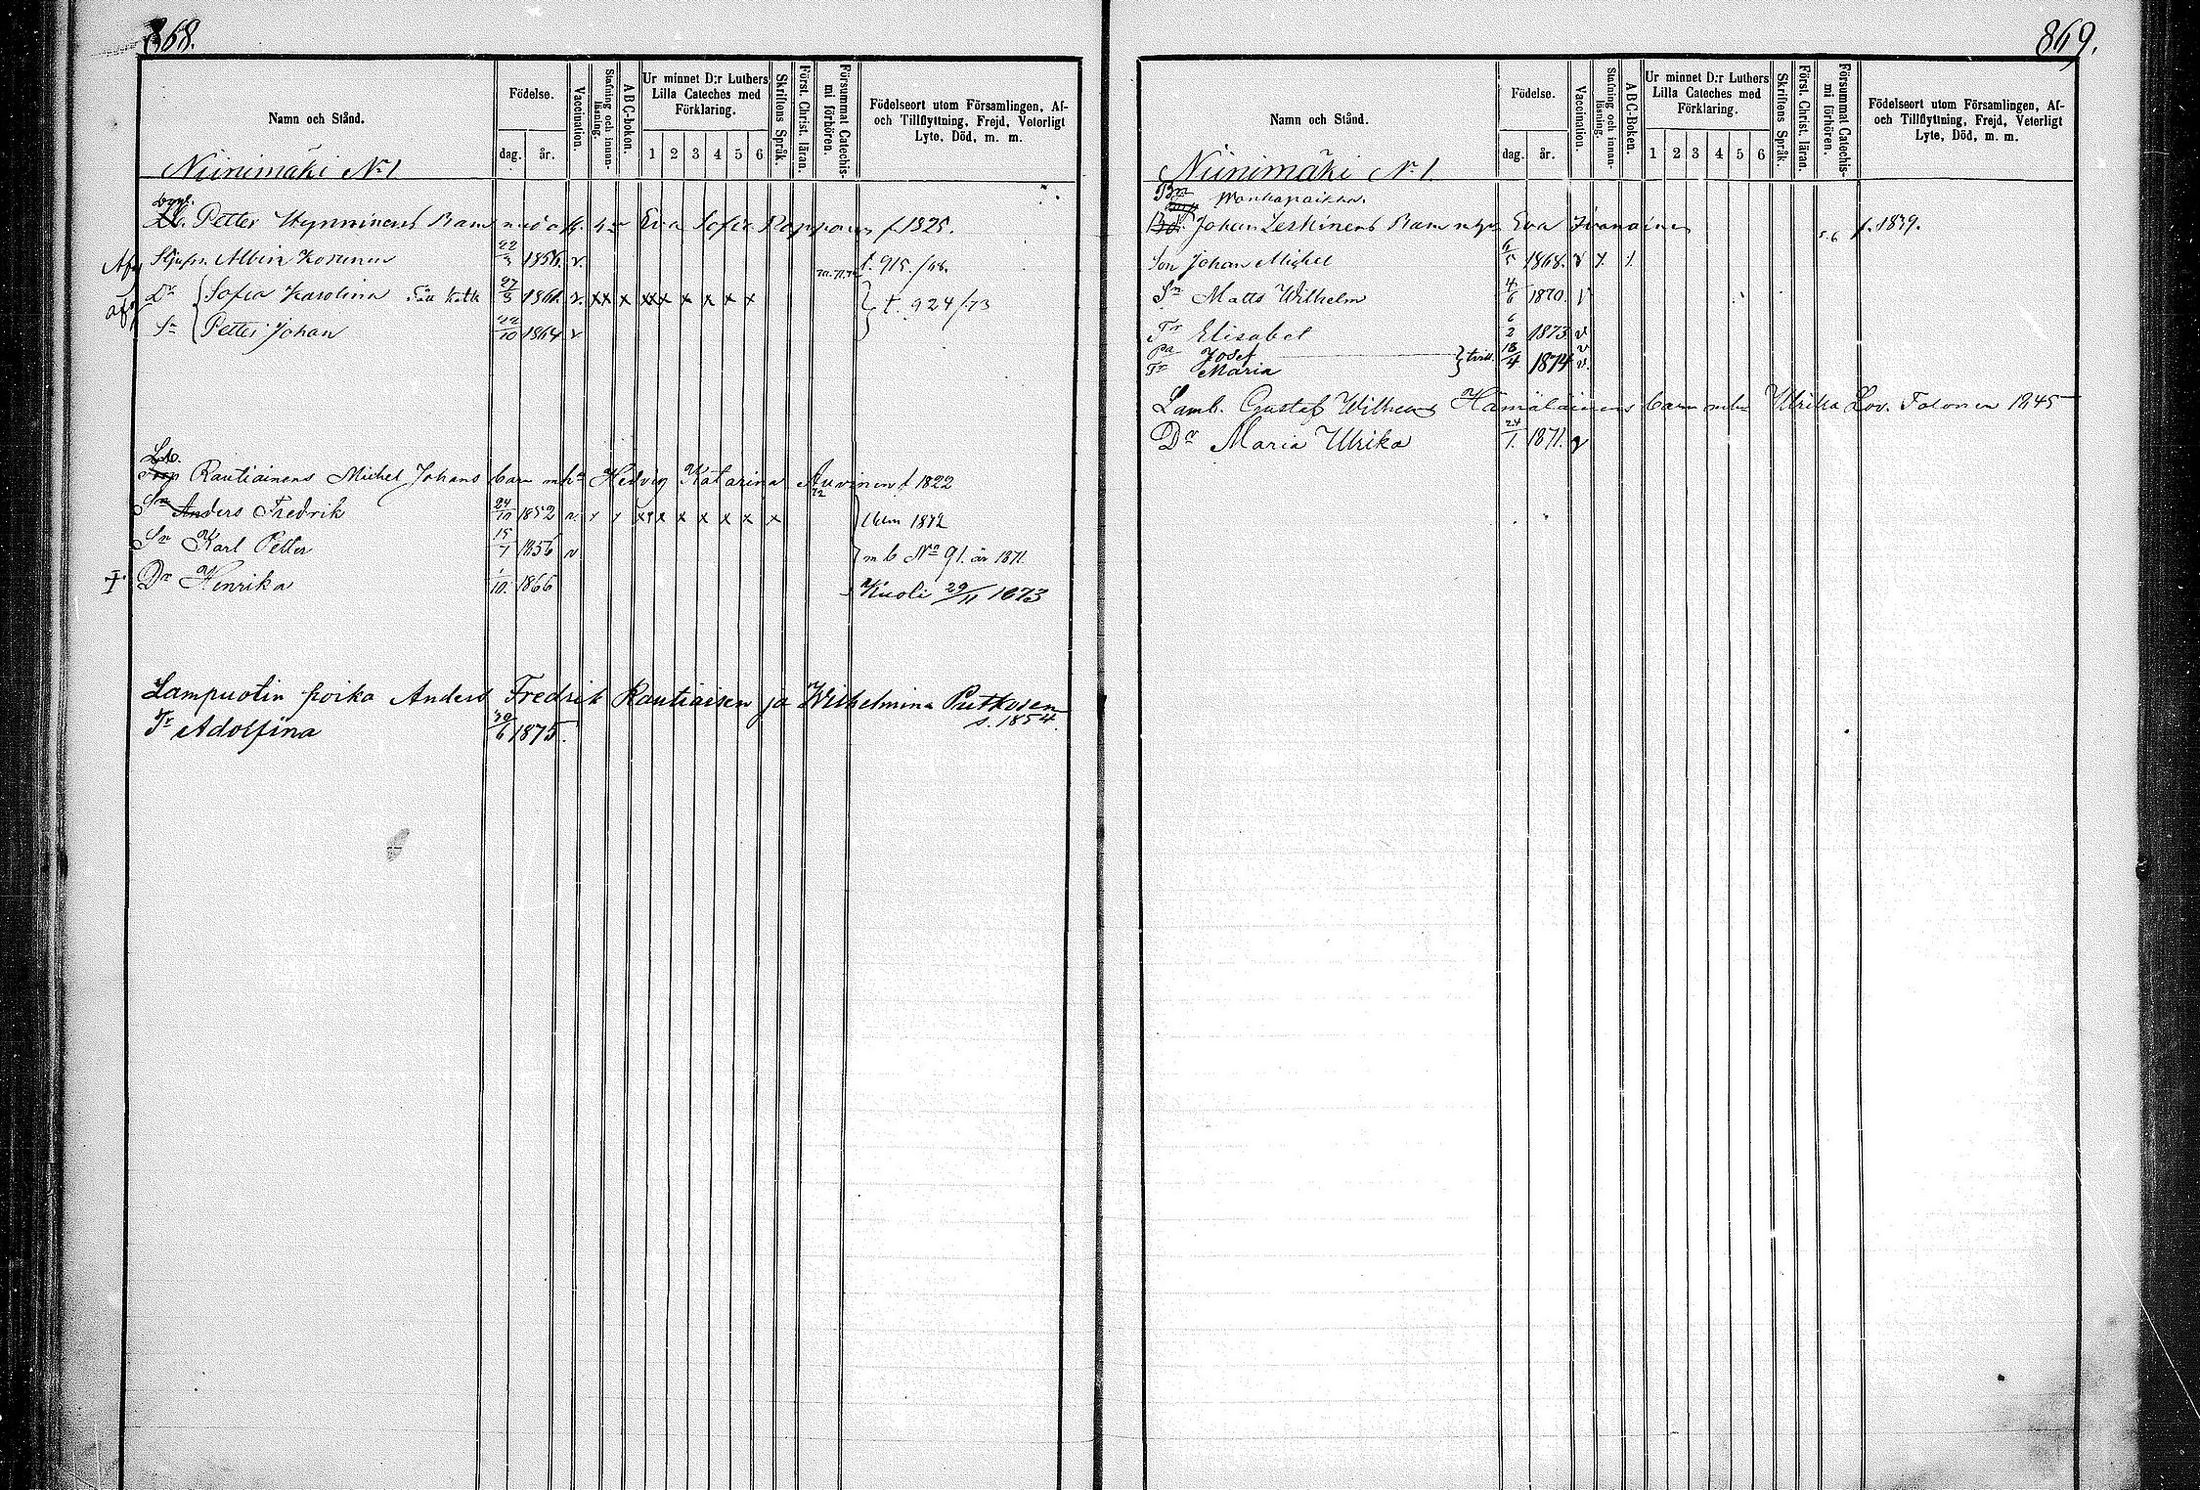 868.
Namn och Stånd.
Födelse.
dag. år.
Vaccination.
Stafning och innan-läsning.
ABC-boken.
Ur minnet D:r Luthers Lilla Cateches med Förklaring.
1 2 3 4 5 6
Skriftens Språk.
Först. Christ. läran.
Försummat Catechis-mi förhören.
Födelseort utom Församlingen, Af- och Tillflyttning, Frejd, Veterligt Lyte, Död, m. m.
Niinimäki No 1
Petter Hynninens Barn med Eva Sofia Ropponen f 1825.
Albin Kosunen 22/3 1856. v. t. 915./68.
Dr Sofia Karolina 27/3 1861. v. x x x x x x x x x x t. 924/73
Sn Petter Johan 1864 v
Lb. Rautiainens Michel Johans barn mh Hedvig Katarina Auvinen f 1822
Sn Anders Fredrik 24/10 1852 v. x x x x x x x x 72 1872
Sn Karl Petter 15/7 1856 v m b No 91. år 1871.
Dr Henrika 1/10. 1866 Kuoli 29/11 1873
Lampuotin poika Anders Fredrik Rautiaisen ja Wilhelmina Putkosen
s. 1854.
Tr Adolfina 30/6 1875.
869.
Namn och Stånd.
Födelse.
dag. år.
Vaccination.
Stafning och innan-läsning.
ABC-Boken.
Ur minnet D:r Luthers Lilla Cateches med Förklaring.
1 2 3 4 5 6
Skriftens Språk.
Först. Christ. läran.
Försummat Catechis-mi förhören.
Födelseort utom Församlingen, Af- och Tillflyttning, Frejd, Veterligt Lyte, Död, m. m.
Niinimäki No 1.
Johan Leskinens Barn Eva f. 1839.
Son Johan Michel 6/5 1868. v
Sn Matts Wilhelm 4/6 1870. v
Tr Elisabet 6/2 1873 v
Pa Josef tvill. 18/4 1874 v
Tr Maria v.
Lamb. Gustaf Wilhelms Hämäläinens barn mh Ulrika Lov. Tolonen 1845
Dr Maria Ulrika 24/1. 1871. v